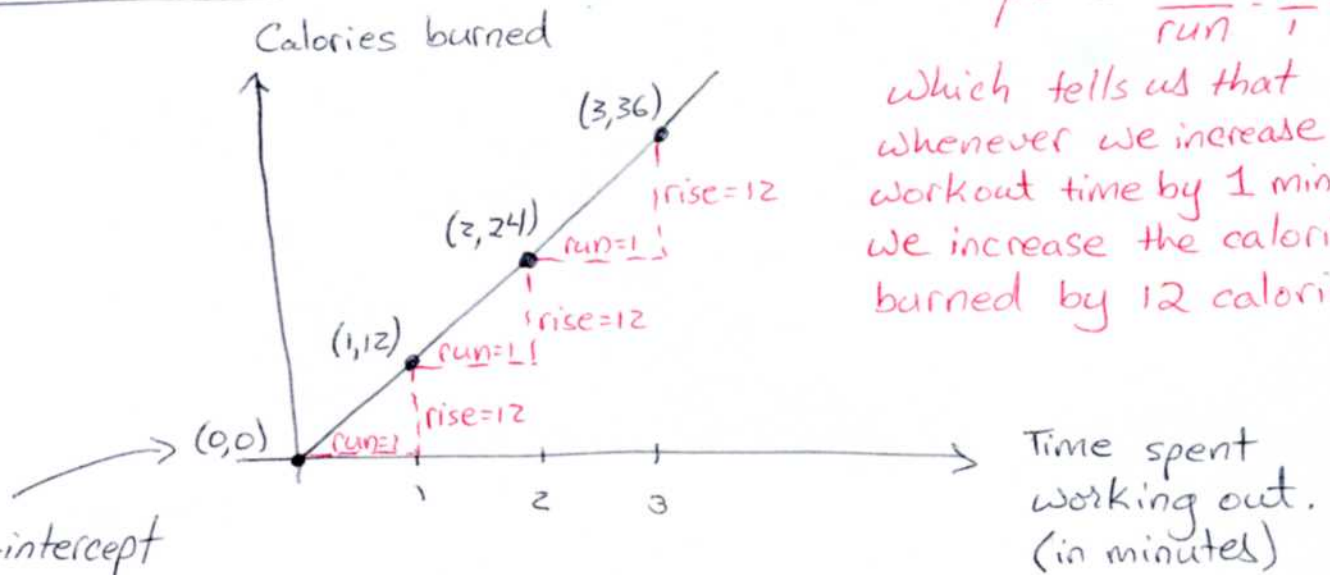 Calories burned
run 1
which tells us that
whenever we increase
workout time by 1 min
we increase the calori
burned by 12 calori
(3,36)
rise=12
(2,24)
run=1
rise=12
(1,12)
run=1
rise=12
(0,0)
run=1
1 2 3
Time spent
working out.
(in minutes)
-intercept